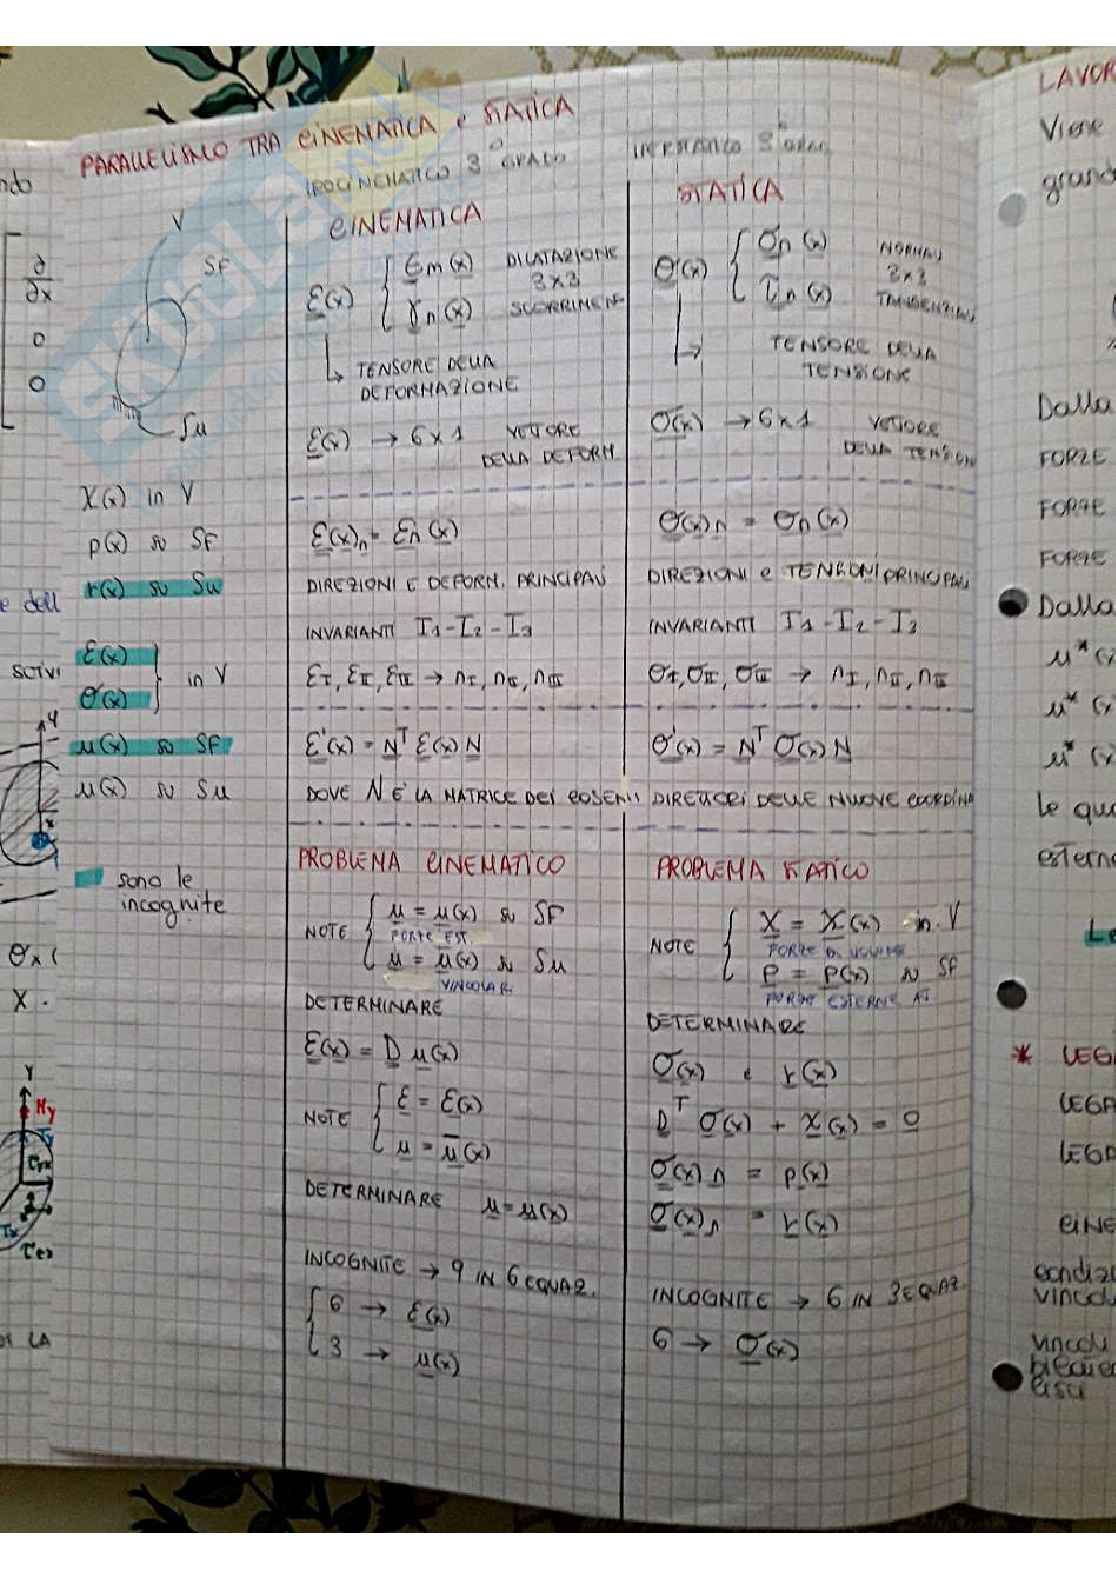 PARALLELISMO TRA CINEMATICA e STATICA
IPOCINEMATICO 3° GRADO
V
SF
Su
X(x) in V
p(x) su SF
r(x) su Su
ε(x)
σ(x)
in V
u(x) su SF
u(x) su Su
sono le
incognite
CINEMATICA
ε(x) { εn(x) DILATAZIONE
3x3
γn(x) SCORRIMENT
↳ TENSORE DELLA
DEFORMAZIONE
ε(x) → 6x1 VETTORE
DELLA DEFORM.
ε(x)n = εn(x)
DIREZIONI E DEFORM. PRINCIPALI
INVARIANTI I1 - I2 - I3
εI, εII, εIII → nI, nII, nIII
ε'(x) = N^T ε(x) N
DOVE N È LA MATRICE DEI COSENI DIRETTORI DELLE NUOVE COORDINA
PROBLEMA CINEMATICO
NOTE { u = u(x) su SF
FORZE EST.
u = u(x) su Su
VINCOLAR.
DETERMINARE
ε(x) = D u(x)
NOTE { ε = ε(x)
u = ū(x)
DETERMINARE u = u(x)
INCOGNITE → 9 IN 6 EQUAZ.
{ 6 → ε(x)
3 → u(x)
STATICA
σ(x) { σn(x) NORMALI
3x3
τn(x) TANGENZIALI
↳ TENSORE DELLA
TENSIONE
σ(x) → 6x1 VETTORE
DELLA TENSION
σ(x)n = σn(x)
DIREZIONI e TENSIONI PRINCIPALI
INVARIANTI I1 - I2 - I3
σI, σII, σIII → nI, nII, nIII
σ'(x) = N^T σ(x) N
PROBLEMA STATICO
NOTE { X = X(x) in V
FORZE DI VOLUME
p = p(x) su SF
FORZE ESTERNE
DETERMINARE
σ(x) e r(x)
D^T σ(x) + X(x) = 0
σ(x) n = p(x)
σ(x) n = r(x)
INCOGNITE → 6 IN 3 EQUAZ.
6 → σ(x)
ndo
∂
∂x
0
0
e dell
scrivi
y
x
σx (
X
Y
Ny
DI LA
LAVOR
Viene
grand
Dalla
FORZE
FORZE
FORZE
Dalla
u* (x
u* (x
u* (x
le qua
esterne
Le
* LEGA
LEGA
LEGA
CINE
condizi
vincol
vincoli
lisci